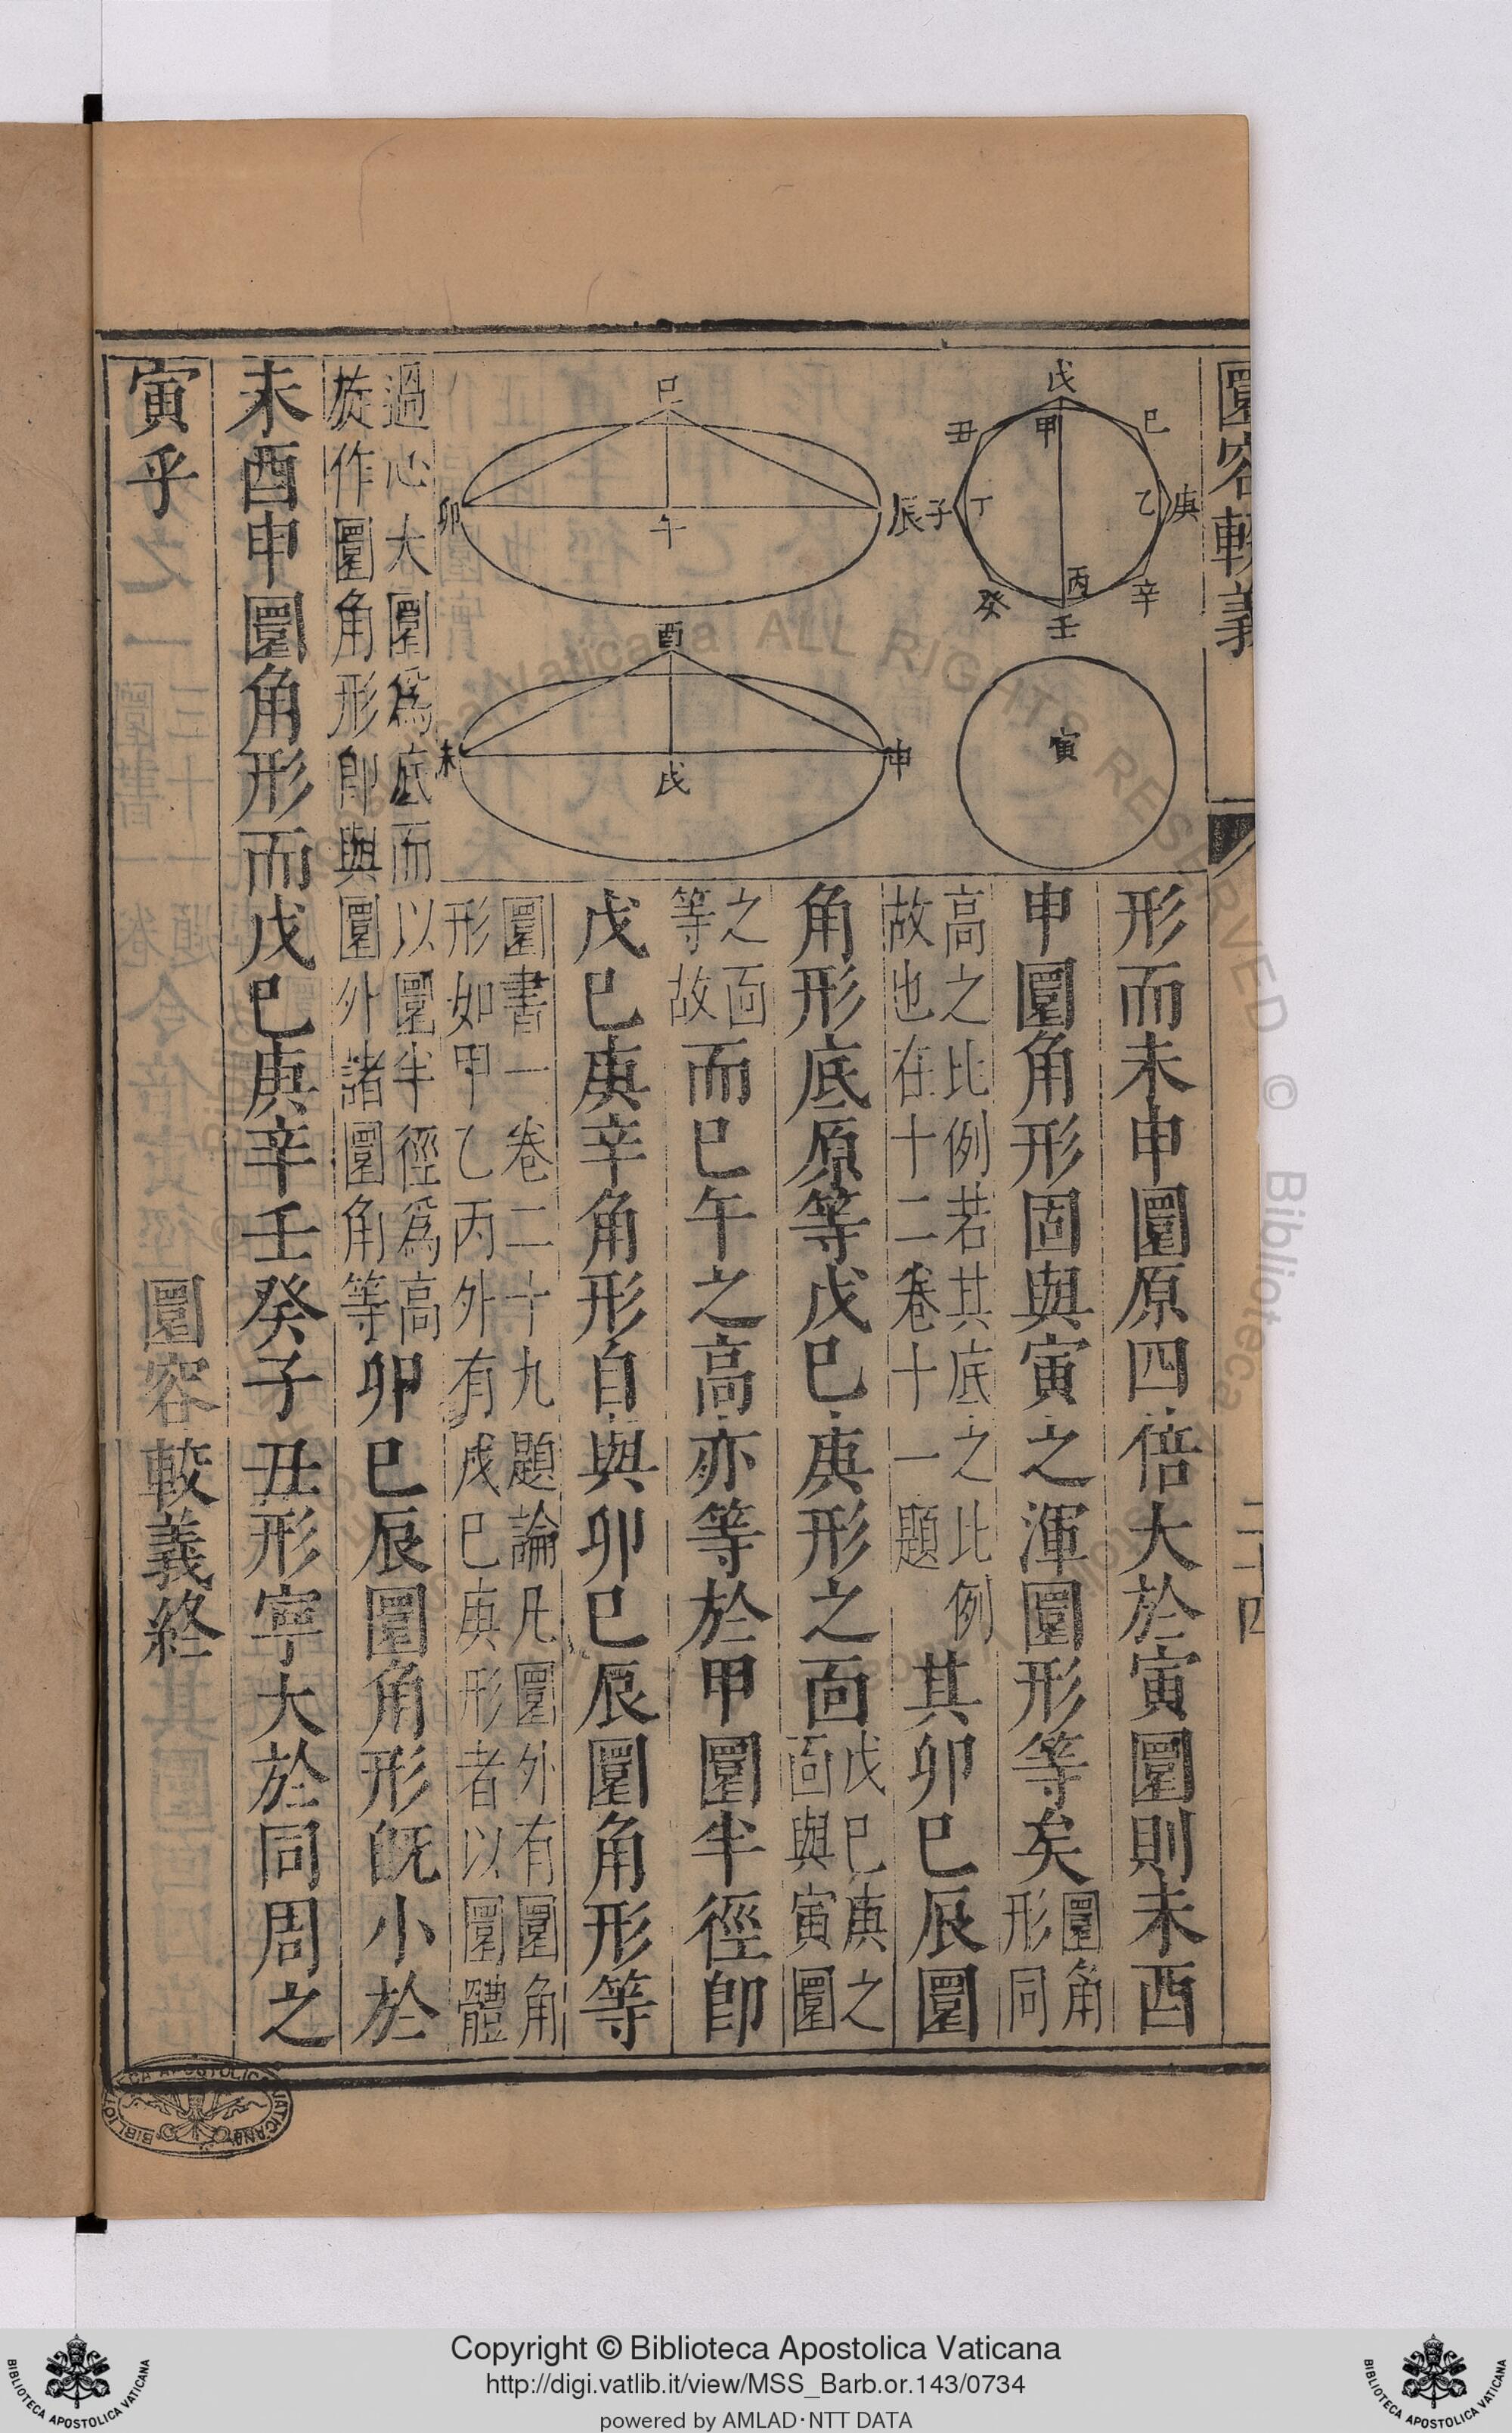 圜容較義
二十四
戊
己
甲
丑
丁
子
乙
庚
丙
辛
癸
壬
寅
巳
卯
午
辰
酉
未
戌
申
形而未申圜原四倍大於寅圜則未酉
申圜角形固與寅之渾圜形等矣
圜角
形同
高之比例若其底之比例
故也在十二卷十一題
其卯巳辰圜
角形底原等戊巳庚形之面
戊巳庚之
面與寅圜
之面
等故
而巳午之高亦等於甲圜半徑卽
戊巳庚辛角形自與卯巳辰圜角形等
圜書一卷二十九題論凡圜外有圜角
形如甲乙丙外有戊巳庚形者以圜體
過心大圜爲底而以圜半徑爲高
旋作圜角形卽與圜外諸圜角等
卯巳辰圜角形旣小於
未酉申圜角形而戊巳庚辛壬癸子丑形寧大於同周之
寅乎
圜容較義終
BIBLIOTECA APOSTOLICA VATICANA
Copyright © Biblioteca Apostolica Vaticana
http://digi.vatlib.it/view/MSS_Barb.or.143/0734
powered by AMLAD·NTT DATA
BIBLIOTECA APOSTOLICA VATICANA
BIBLIOTECA APOSTOLICA VATICANA